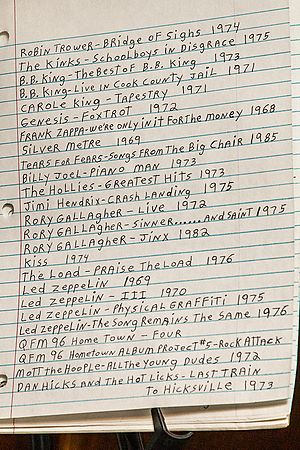 Robin Trower - Bridge of Sighs 1974
The Kinks - Schoolboys in Disgrace 1975
B.B. King - The Best of B.B. King 1973
B.B. King - Live in Cook County Jail 1971
Carole King - Tapestry 1971
Genesis - Foxtrot 1972
Frank Zappa - we're only in it for the money 1968
Silver Metre 1969
Tears for Fears - Songs from The Big Chair 1985
Billy Joel - Piano Man 1973
The Hollies - Greatest Hits 1973
Jimi Hendrix - Crash Landing 1975
Rory Gallagher - Live 1972
Rory Gallagher - Sinner......and Saint 1975
Rory Gallagher - Jinx 1982
Kiss 1974
The Load - Praise The Load 1976
Led Zeppelin 1969
Led Zeppelin - III 1970
Led Zeppelin - Physical Graffiti 1975
Led Zeppelin - The Song Remains The Same 1976
QFM 96 Home Town - Four
QFM 96 Hometown Album Project #5 - Rock Attack
Mott the Hoople - All the Young Dudes 1972
Dan Hicks and the Hot Licks - Last Train
To Hicksville 1973